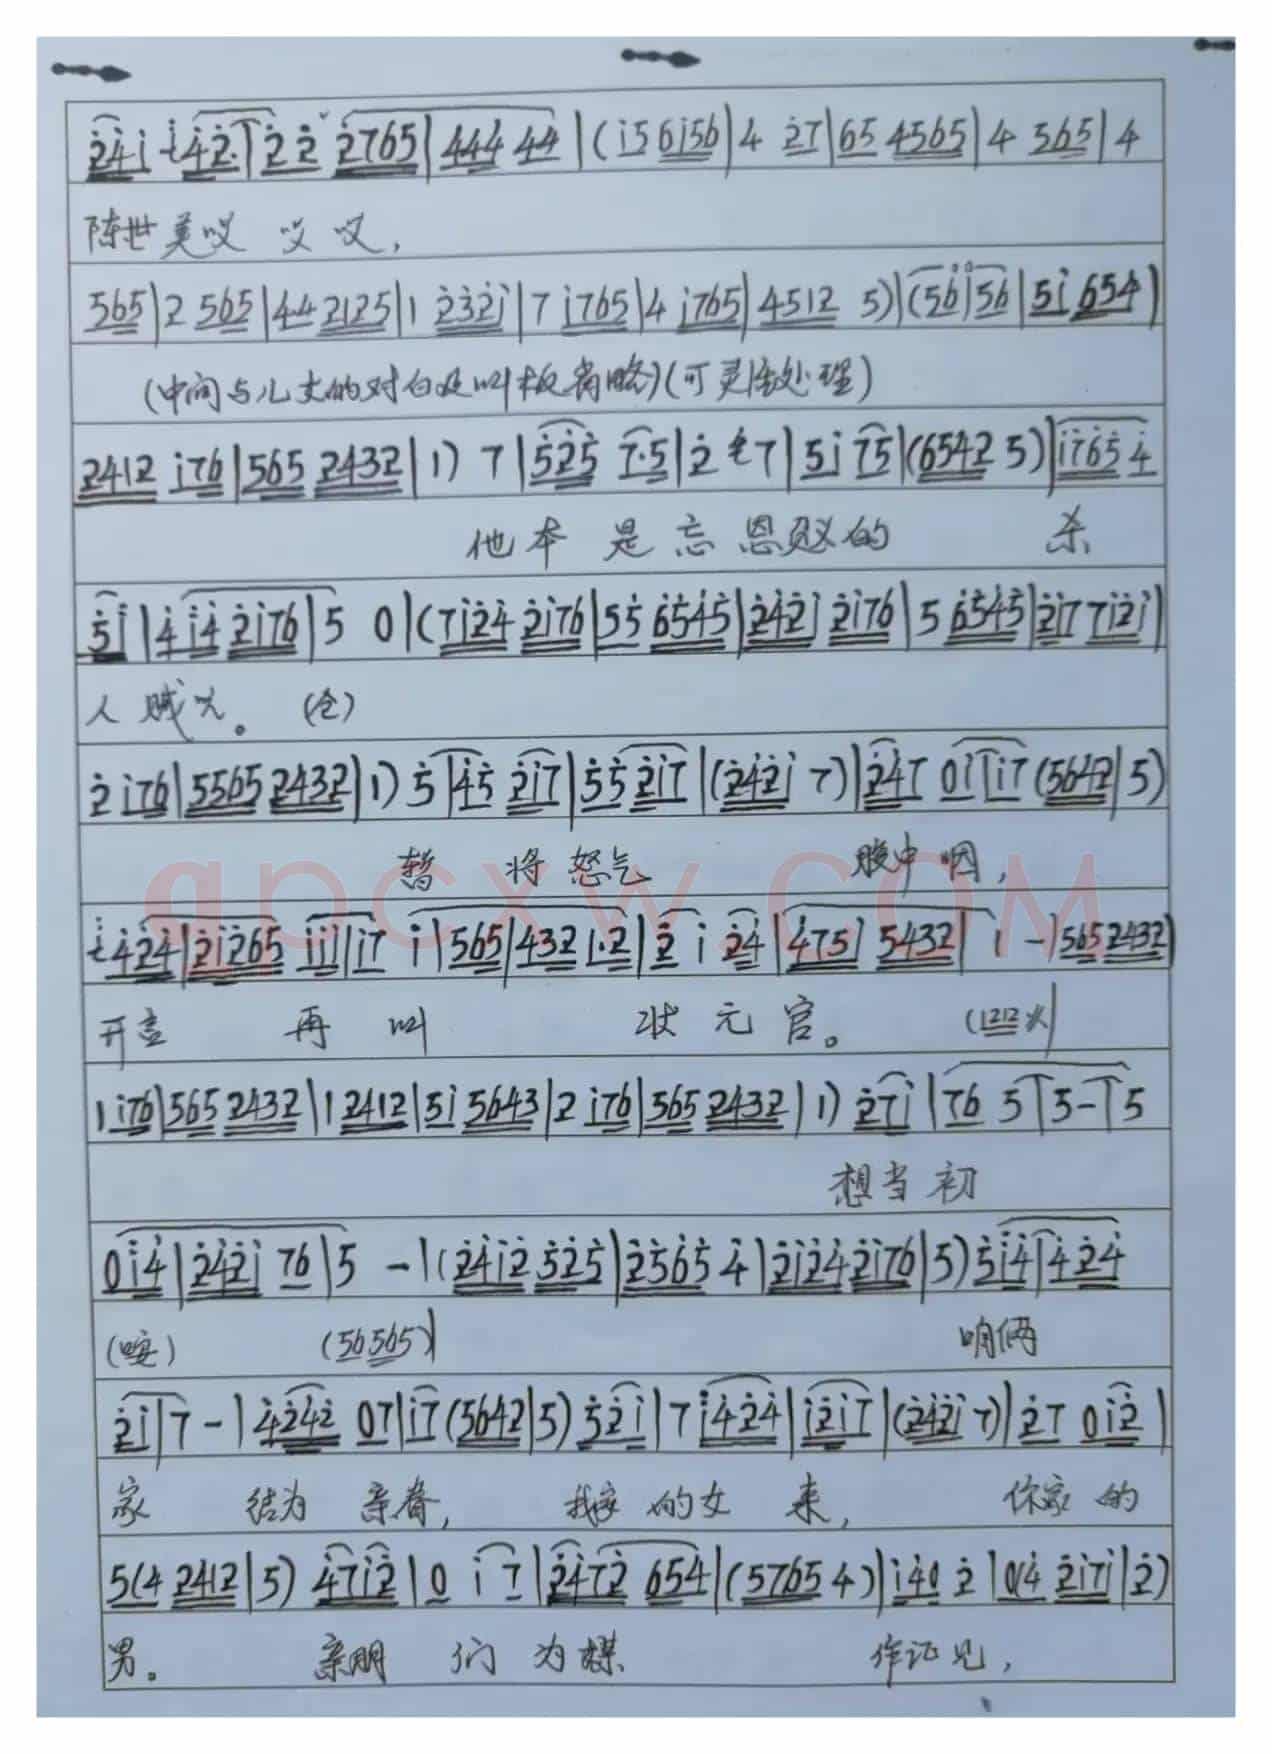 2̇4̇i 4̇2̇·|2̇ 2̇ 2̇765|444 44|(i5 6i56|4 2̇7|65 4565|4 565|4
陈世美哎 哎 哎,
565|2 565|44 2125|1 2̇3̇2̇i|7 i765|4 i765|4512 5)|(56|56|5i 654)
(中间与儿女的对白及叫板省略)(可灵活处理)
2412 i76|565 2432|1) 7|5̇2̇5̇ 7·5|2̇ 7|5i 75|(6542 5)|i765 4̇
他本是忘恩负义的 杀
5̇i|4̇ i4̇ 2̇i76|5 0|(7i2̇4̇ 2̇i76|5̇5̇ 6̇5̇4̇5̇|2̇4̇2̇i 2̇i76|5 6̇5̇4̇5̇|2̇i7 7i2̇i|
人贼 。 (仓)
2̇ i76|5565 2432|1) 5̇|4̇5̇ 2̇i7|5̇5̇ 2̇i7|(2̇4̇2̇i 7)|2̇4̇7 0i|i7 (5642|5)
暂 将 怒气 腹中咽,
4̇2̇4̇|2̇i2̇65 iii|i7 i|565|432 1·2|2̇ i 2̇4̇|4̇75| 5432|1 -|565 2432|
开言 再 叫 状 元 官。 (1212
1 i76|565 2432|1 2412|5i 5643|2 i76|565 2432|1) 2̇7i|76 5|5-|5
想当初
0i4̇|2̇4̇2̇i 76|5 -|(2̇4̇i2̇ 5̇2̇5̇|2̇5̇6̇5̇ 4̇|2̇i2̇4̇ 2̇i76|5) 5̇i4̇|4̇2̇4̇
(唵) (56565)| 咱俩
2̇i|7 -|4̇2̇4̇2̇ 07|i7 (5642|5) 5̇2̇i|7 i4̇2̇4̇|i2̇i7|(2̇4̇2̇i 7)|2̇7 0i2̇|
家 结为 亲眷, 我家 的女 来, 你家 的
5(4 2412|5) 4̇7i2̇|0 i 7|2̇4̇72̇ 654|(5765 4)|i4̇0 2̇|0(4̇ 2̇i7i|2̇)
男。 亲朋 们 为媒 作证见,
apcxw.com